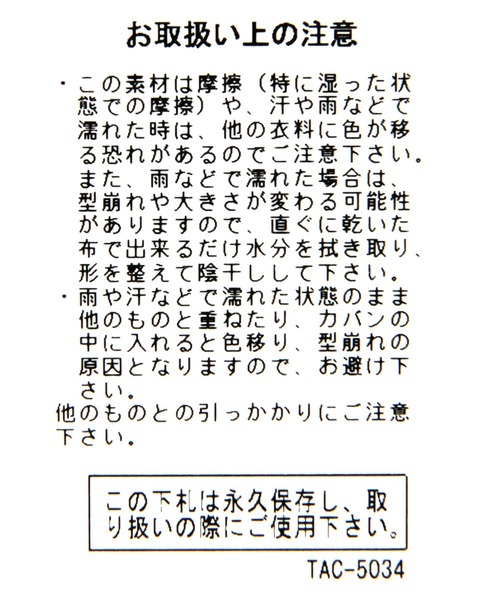 お取扱い上の注意
・この素材は摩擦（特に湿った状
態での摩擦）や、汗や雨などで
濡れた時は、他の衣料に色が移
る恐れがあるのでご注意下さい。
また、雨などで濡れた場合は、
型崩れや大きさが変わる可能性
がありますので、直ぐに乾いた
布で出来るだけ水分を拭き取り、
形を整えて陰干しして下さい。
・雨や汗などで濡れた状態のまま
他のものと重ねたり、カバンの
中に入れると色移り、型崩れの
原因となりますので、お避け下
さい。
他のものとの引っかかりにご注意
下さい。
この下札は永久保存し、取
り扱いの際にご使用下さい。
TAC-5034